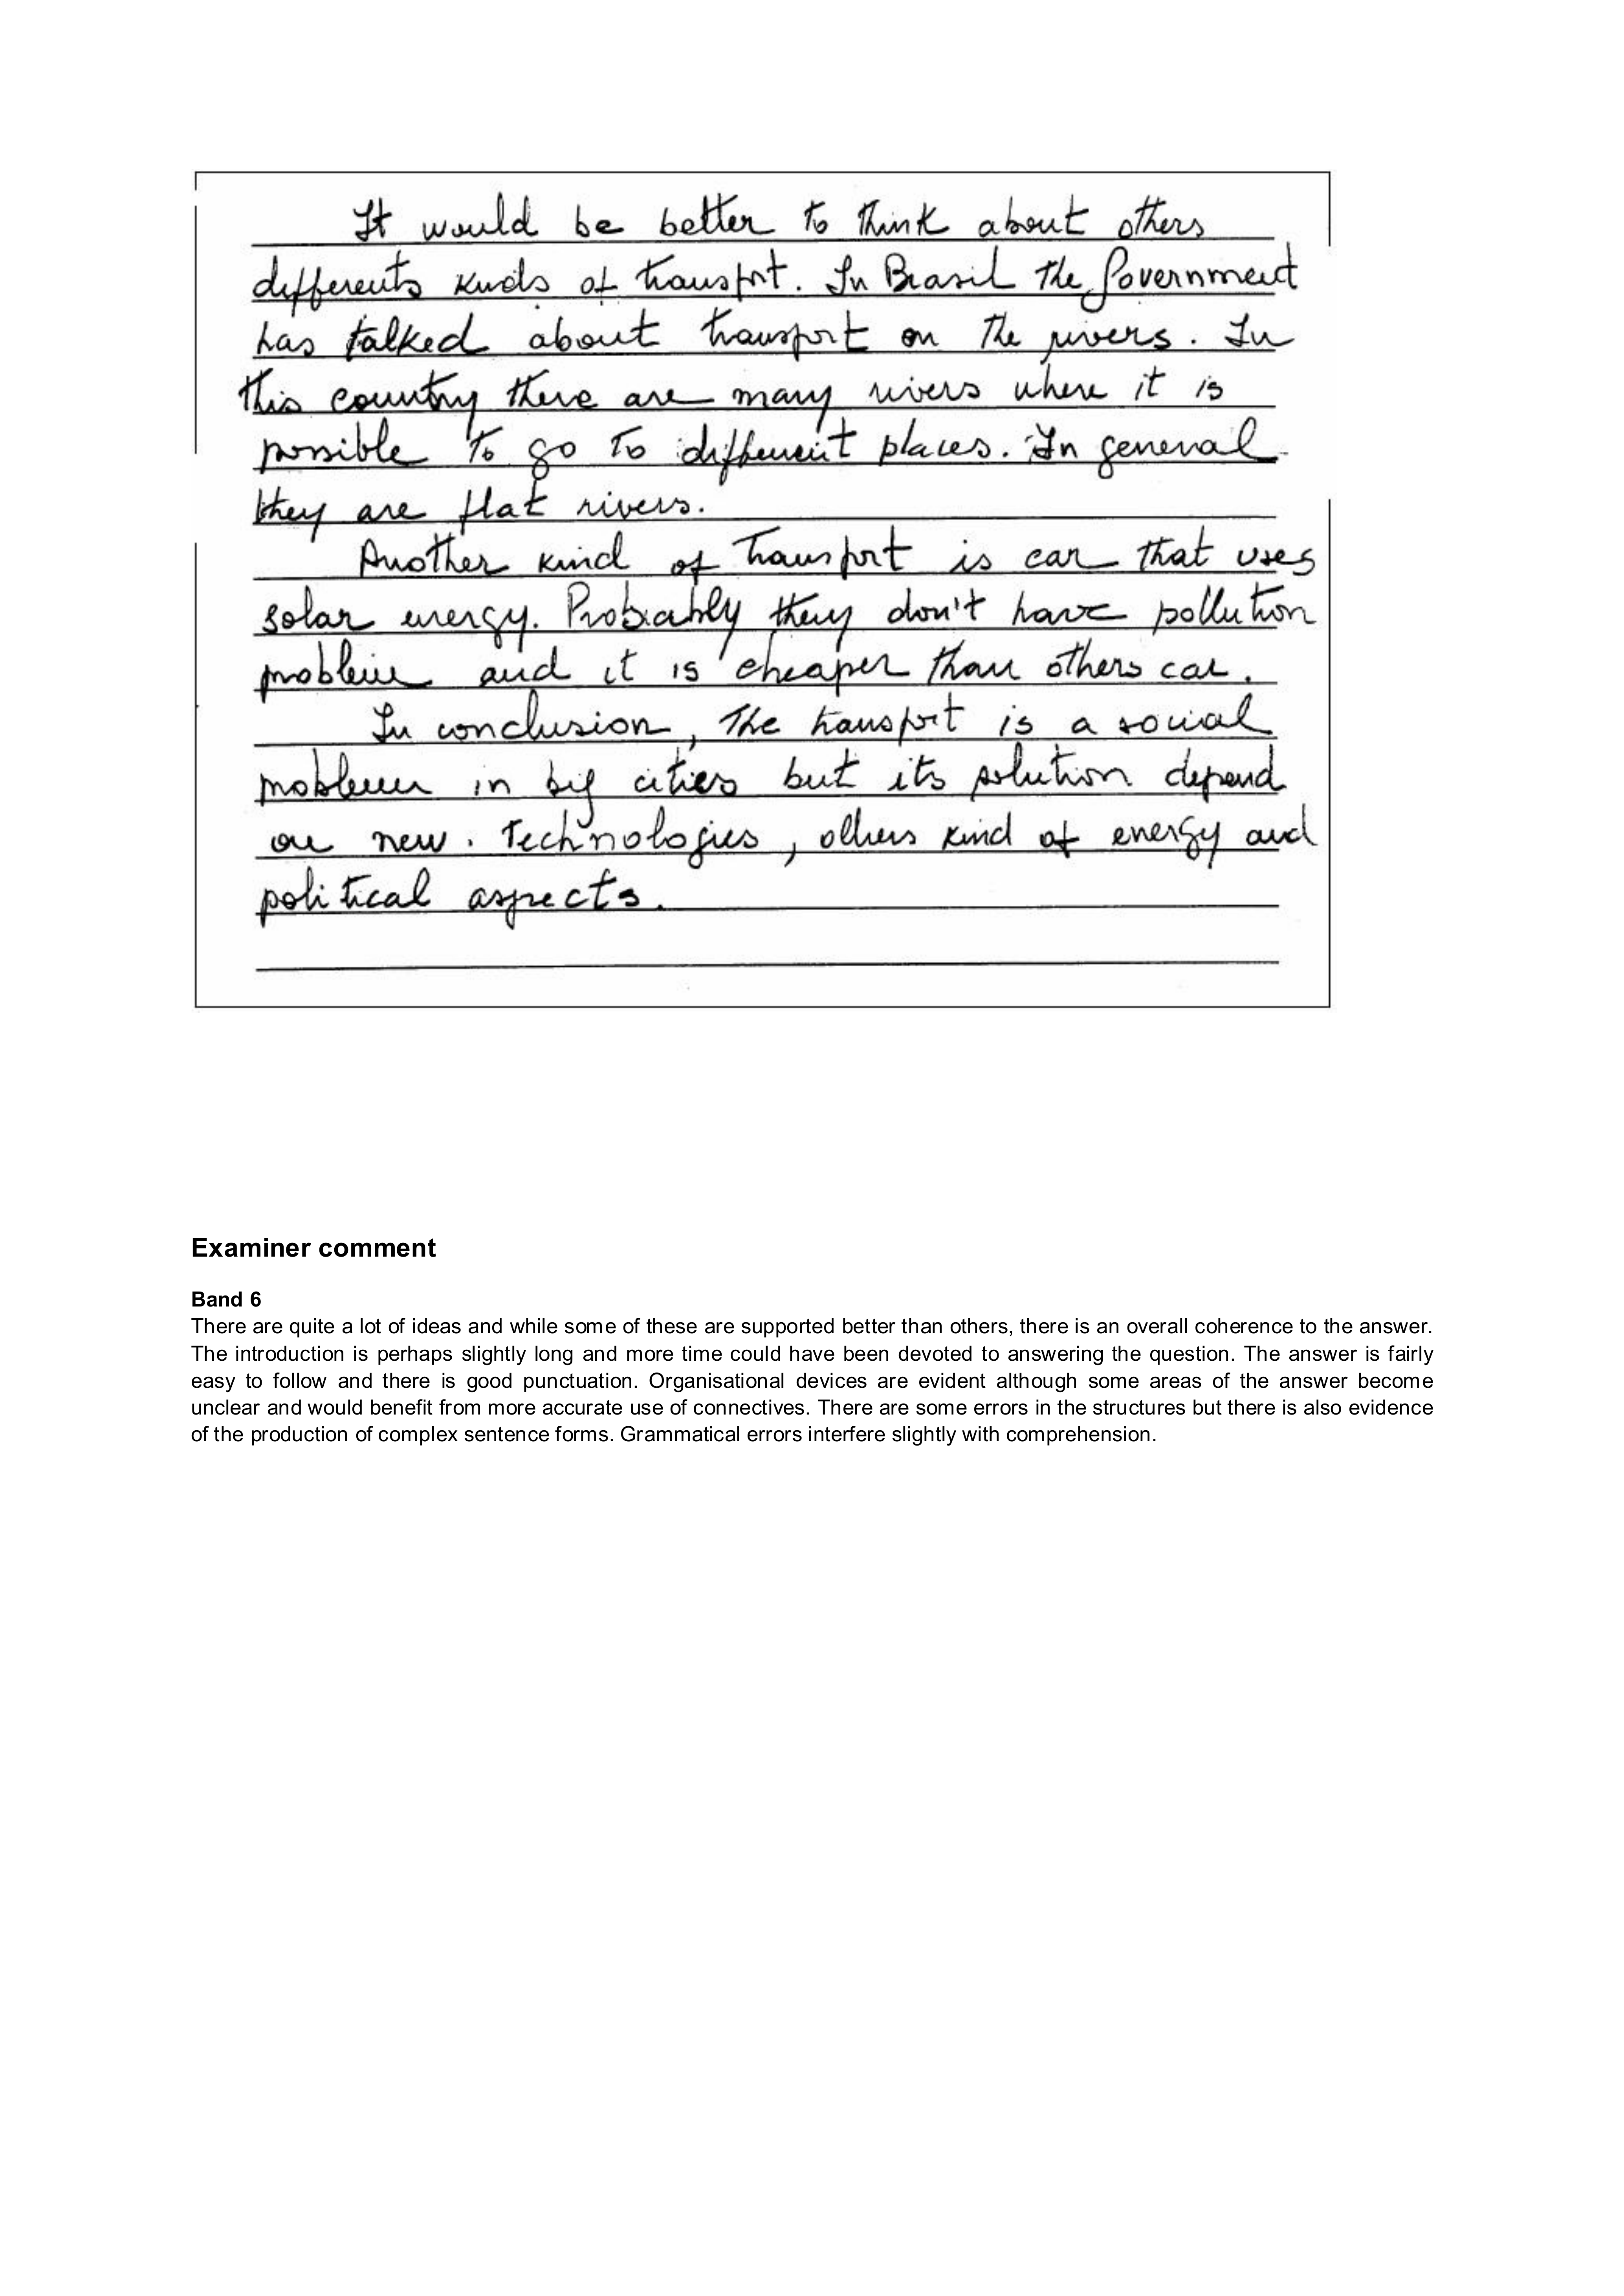 It would be better to think about others
differents kinds of transport. In Brasil the Government
has talked about transport on the rivers. In
this country there are many rivers where it is
possible to go to different places. In general
they are flat rivers.
Another kind of transport is car that uses
solar energy. Probably they don't have pollution
problem and it is cheaper than others car.
In conclusion, the transport is a social
problem in big cities but its solution depend
on new. technologies, others kind of energy and
political aspects.
Examiner comment
Band 6
There are quite a lot of ideas and while some of these are supported better than others, there is an overall coherence to the answer.
The introduction is perhaps slightly long and more time could have been devoted to answering the question. The answer is fairly
easy to follow and there is good punctuation. Organisational devices are evident although some areas of the answer become
unclear and would benefit from more accurate use of connectives. There are some errors in the structures but there is also evidence
of the production of complex sentence forms. Grammatical errors interfere slightly with comprehension.